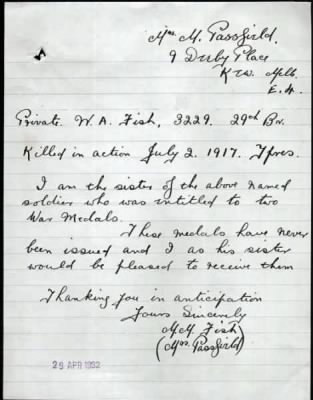 Mrs M. Passfield.
9 Derby Place
Kew Melb.
E.4.
Private W. A. Fish, 3229. 29th Bn.
Killed in action July 2. 1917. Ypres.
I am the sister of the above named
soldier who was intitled to two
War Medals.
These medals have never
been issued and I as his sister
would be pleased to receive them
Thanking you in anticipation
Yours Sincerely
M M. Fish
(Mrs. Passfield)
29 APR 1952